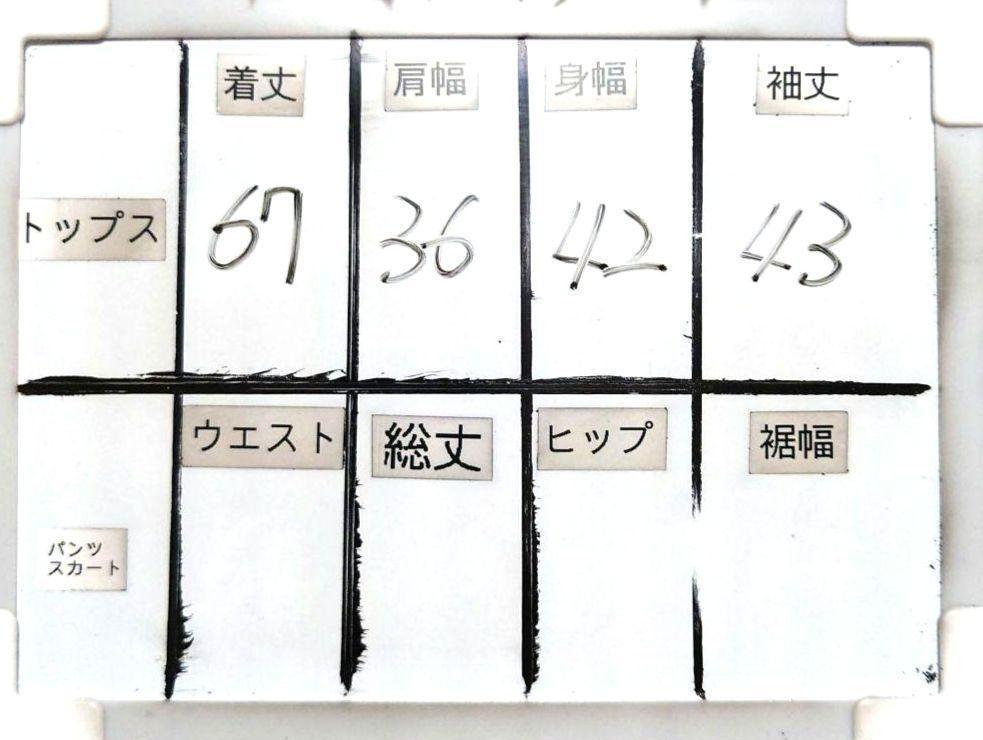 着丈 肩幅 身幅 袖丈
トップス 67 36 42 43
ウエスト 総丈 ヒップ 裾幅
パンツ
スカート